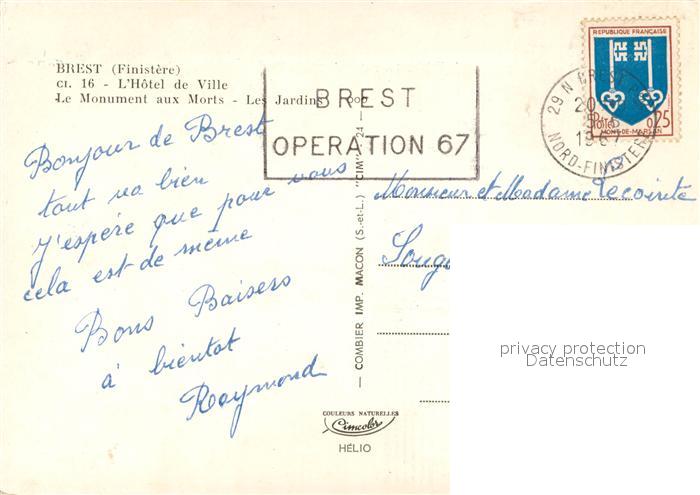 BREST (Finistère)
CI. 16 - L'Hôtel de Ville
Le Monument aux Morts - Les Jardins
BREST
OPERATION 67
REPUBLIQUE FRANÇAISE
Postes 0,25
MONT-DE-MARSAN
29 N BREST
20
1967
NORD-FINISTERE
Bonjour de Brest
tout va bien
J'espère que pour vous
cela est de même
Bons Baisers
à bientot
Raymond
COMBIER IMP. MACON (S.-et-L.) "CIM"
Monsieur et Madame Lecointe
Souge
privacy protection
Datenschutz
COULEURS NATURELLES
Cimcolor
HÉLIO